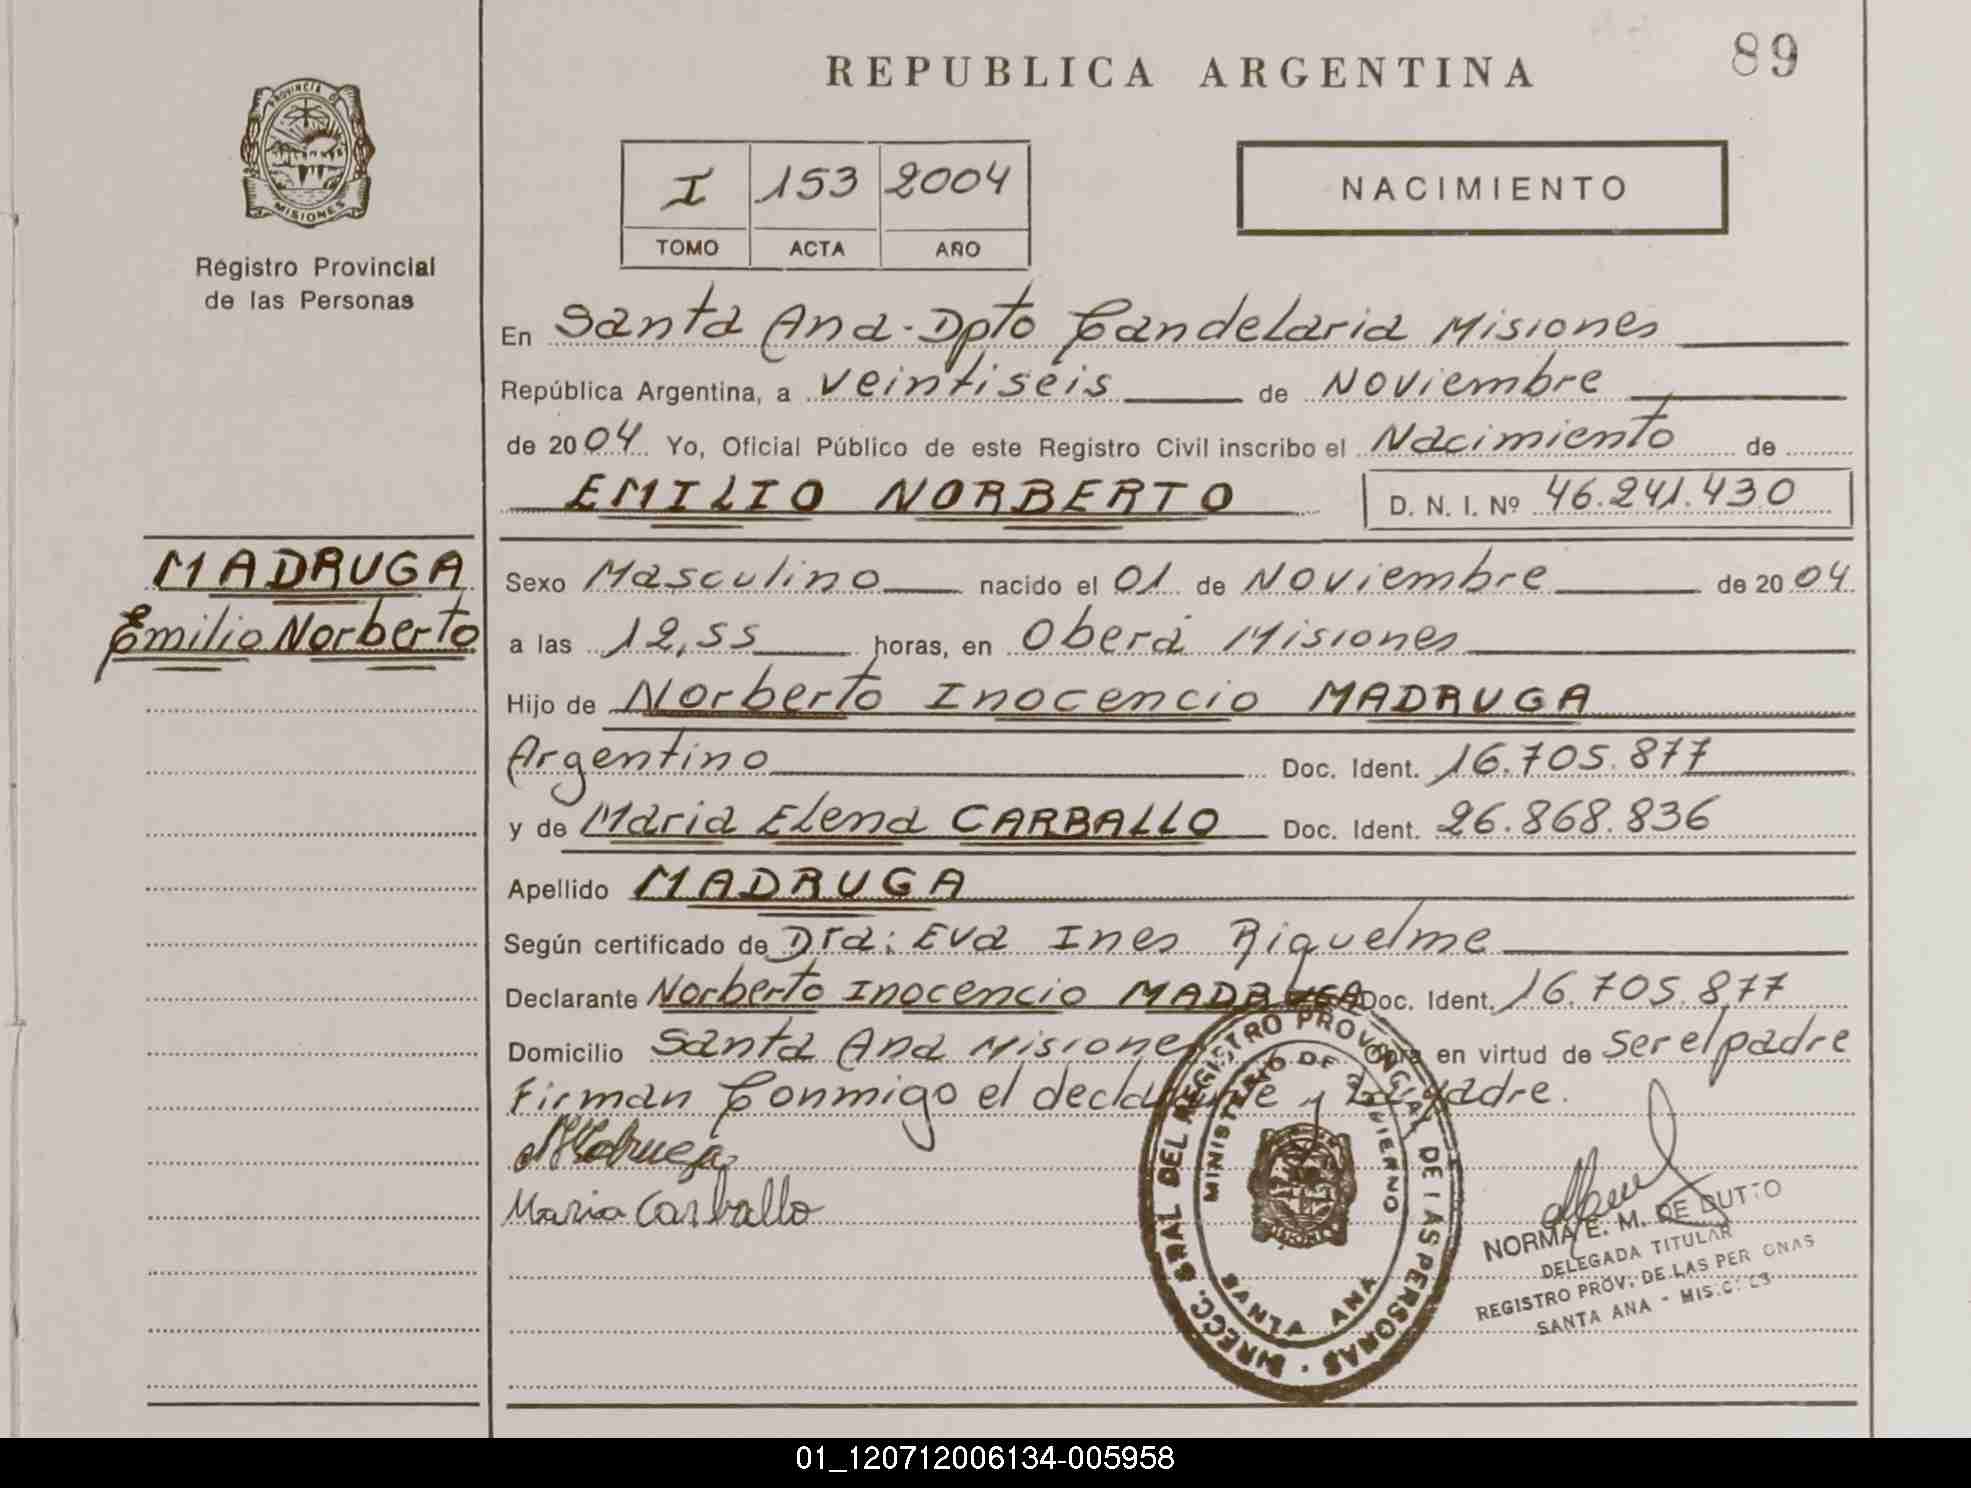 REPUBLICA ARGENTINA
89
PROVINCIA DE
MISIONES
Registro Provincial
de las Personas
I 153 2004
TOMO ACTA AÑO
NACIMIENTO
En Santa Ana - Dpto Candelaria Misiones
República Argentina, a veintiséis de Noviembre
de 2004 Yo, Oficial Público de este Registro Civil inscribo el Nacimiento de
EMILIO NORBERTO
D. N. I. Nº 46.241.430
MADRUGA
Emilio Norberto
Sexo Masculino nacido el 01 de Noviembre de 2004
a las 12,55 horas, en Oberá Misiones
Hijo de Norberto Inocencio MADRUGA
Argentino Doc. Ident. 16.705.877
y de Maria Elena CARBALLO Doc. Ident. 26.868.836
Apellido MADRUGA
Según certificado de Dra: Eva Ines Riquelme
Declarante Norberto Inocencio MADRUGA Doc. Ident. 16.705.877
Domicilio Santa Ana Misiones Obra en virtud de ser el padre
Firman Conmigo el declarante y La madre.
Maria Carballo
DIRECC. GRAL DEL REGISTRO PROVINCIAL DE LAS PERSONAS
MINISTERIO DE GOBIERNO
SANTA ANA
MISIONES
NORMA E. M. DE DUTTO
DELEGADA TITULAR
REGISTRO PROV. DE LAS PERSONAS
SANTA ANA - MISIONES
01_120712006134-005958